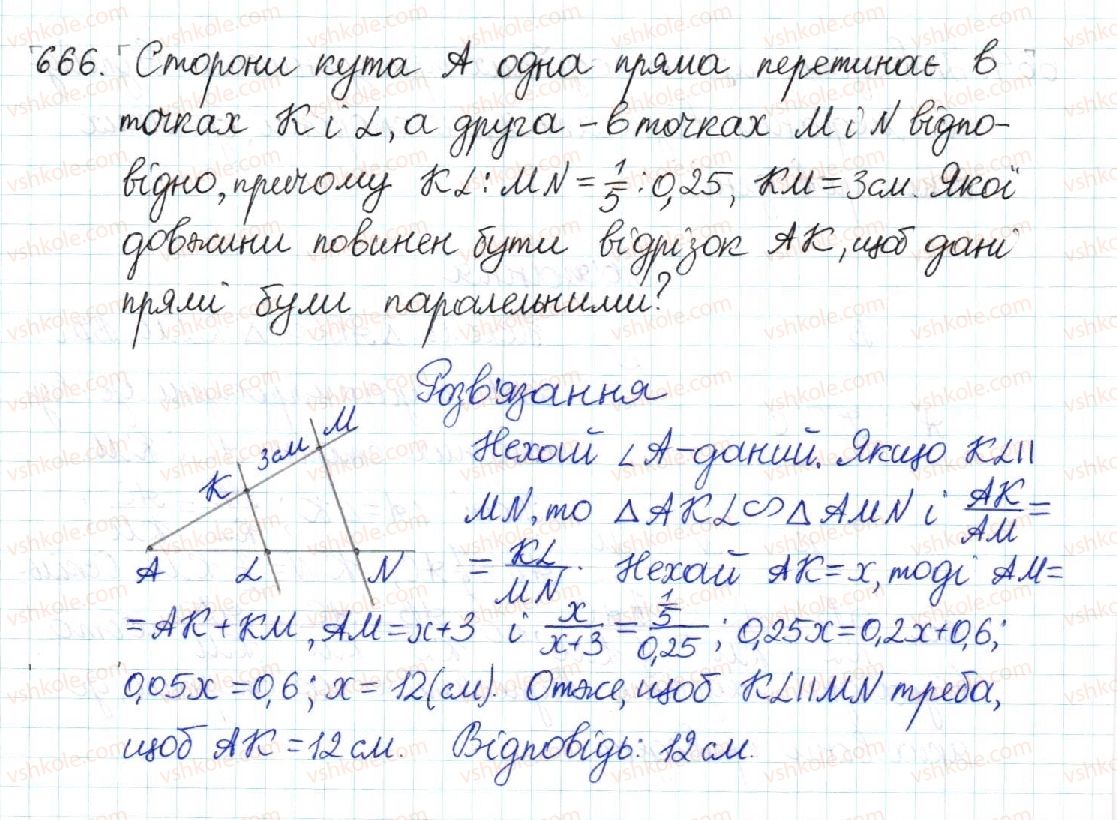 666. Сторони кута A одна пряма перетинає в
точках K і L, а друга – в точках M і N відпо-
відно, причому KL : MN = 1/5 : 0,25, KM = 3 см. Якої
довжини повинен бути відрізок AK, щоб дані
прямі були паралельними?
Розв'язання
K 3 см M
A L N
Нехай ∠A – даний. Якщо KL ||
MN, то △AKL ∽ △AMN і AK/AM =
= KL/MN. Нехай AK = x, тоді AM =
= AK + KM, AM = x + 3 і x/(x+3) = (1/5)/0,25; 0,25x = 0,2x + 0,6;
0,05x = 0,6; x = 12 (см). Отже, щоб KL || MN треба,
щоб AK = 12 см. Відповідь: 12 см.
vshkole.com